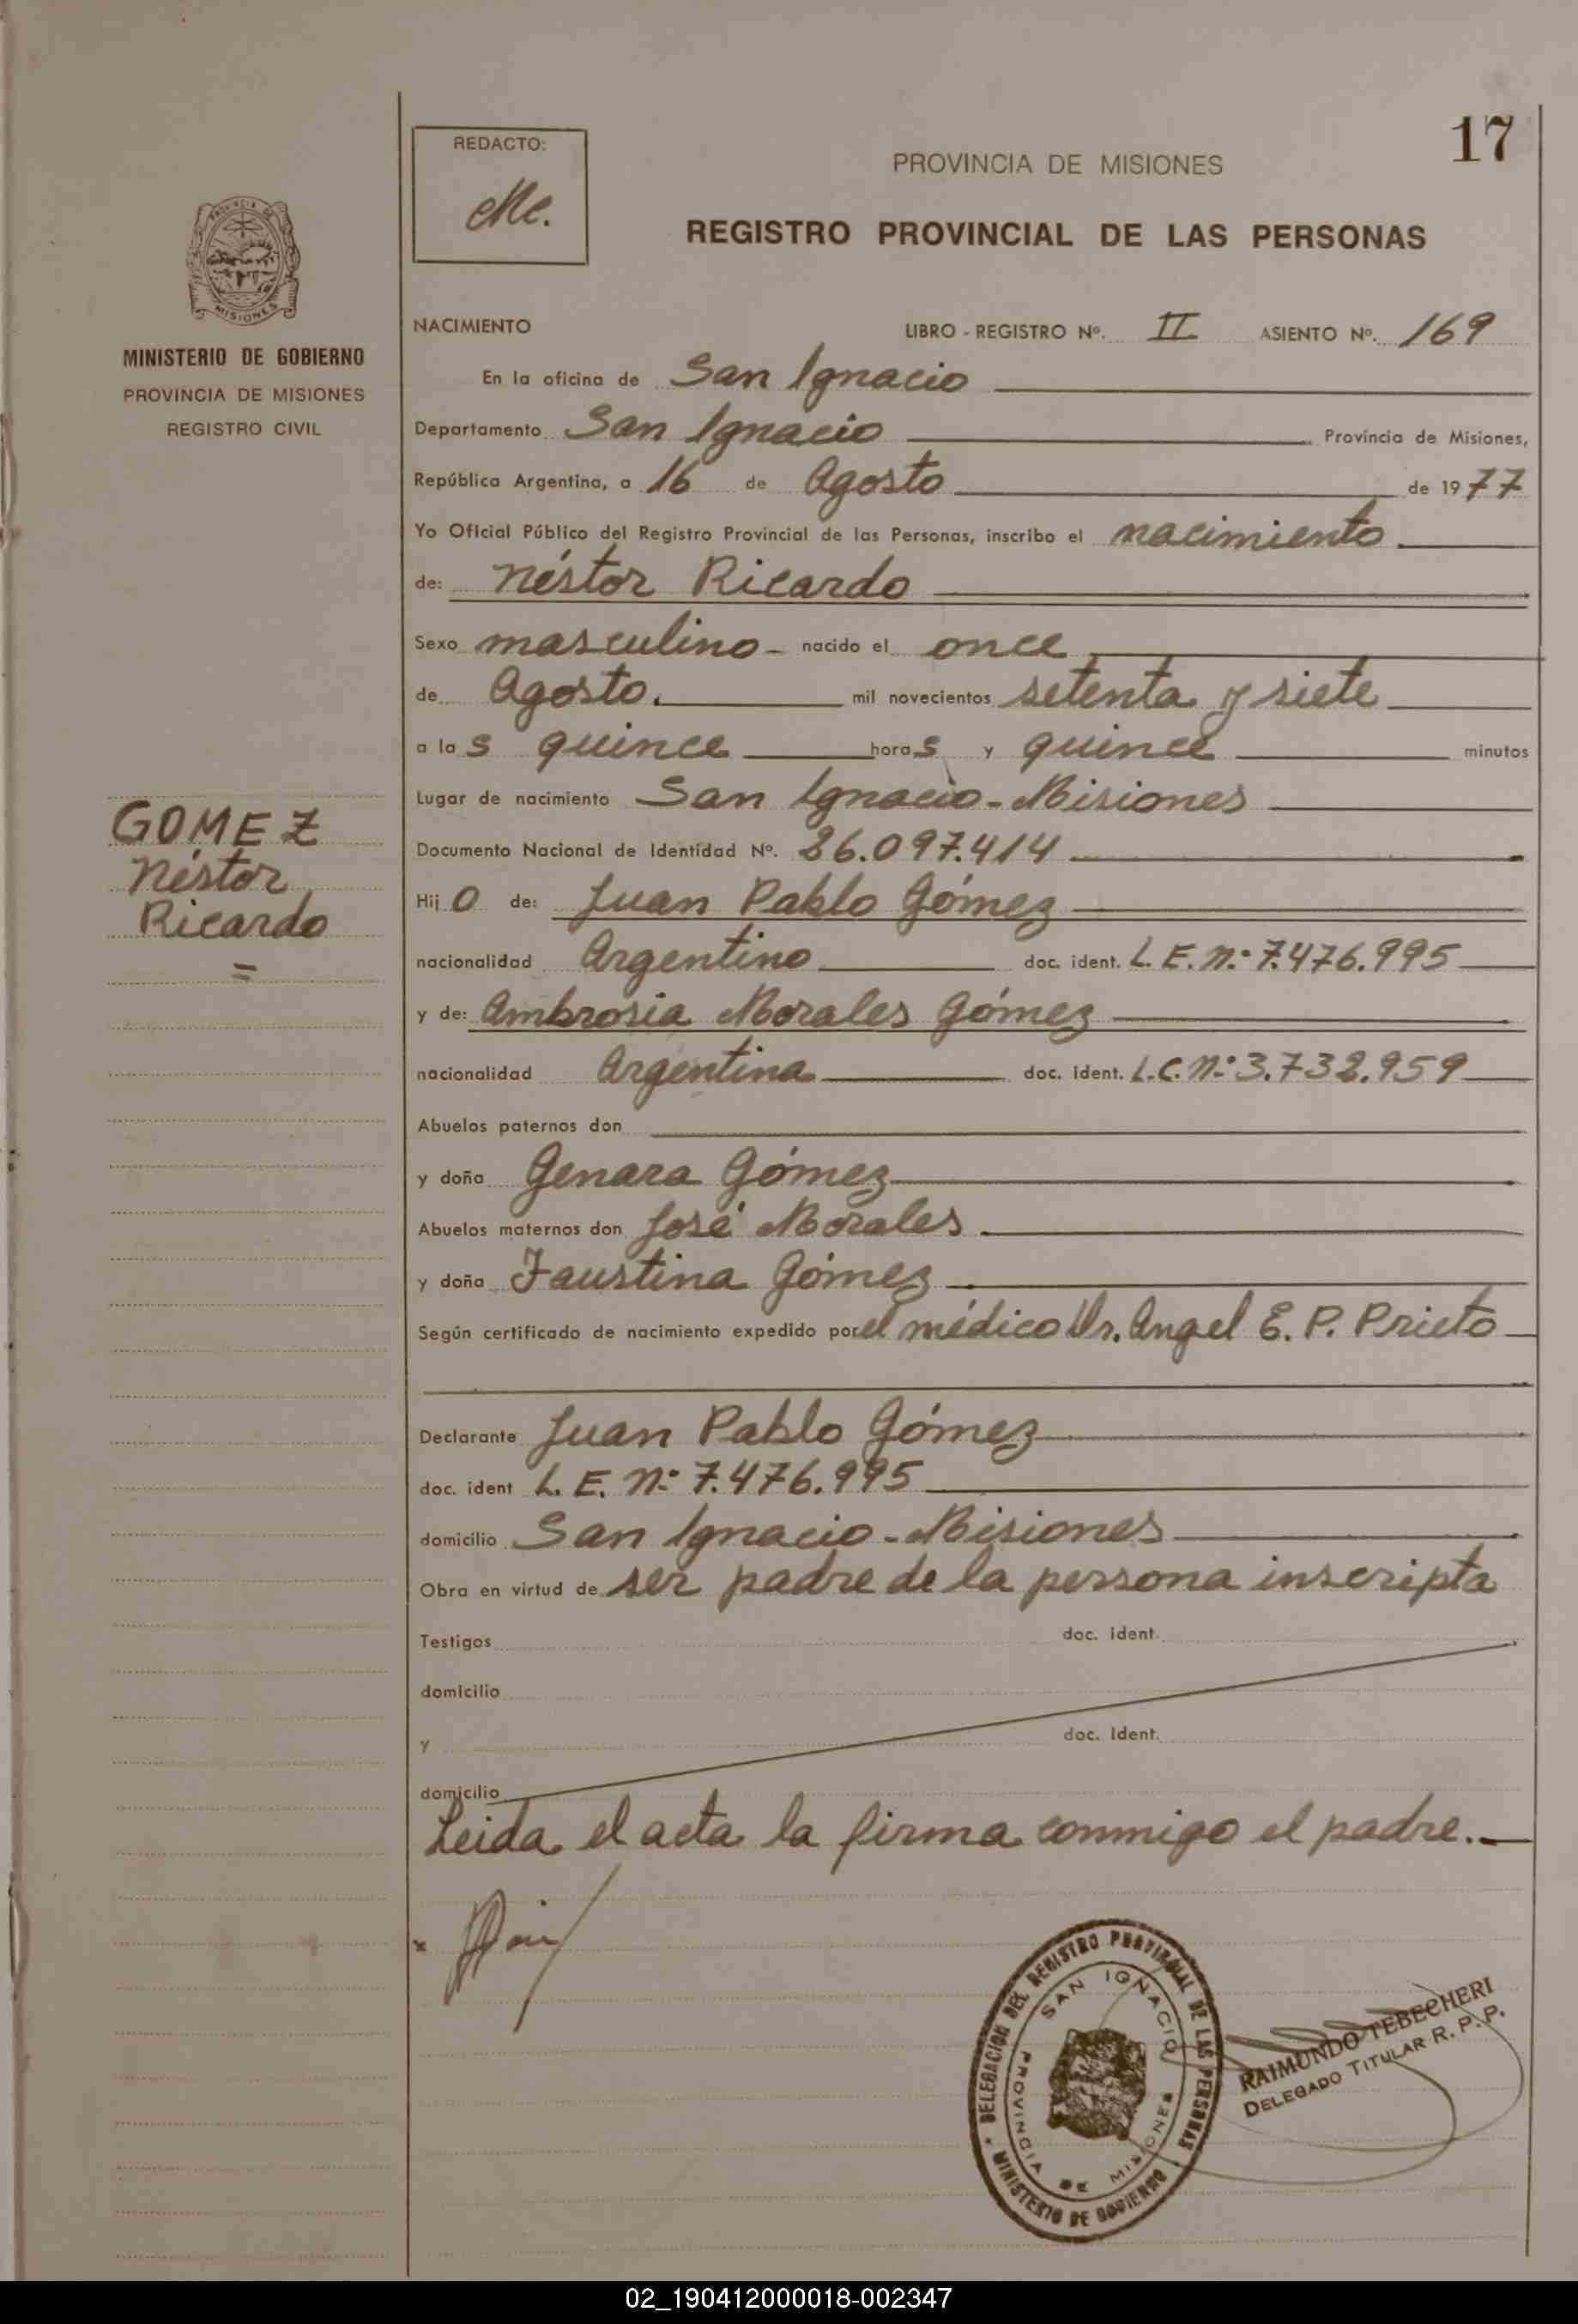 17
REDACTO:
Me.
PROVINCIA DE MISIONES
REGISTRO PROVINCIAL DE LAS PERSONAS
PROVINCIA DE
MISIONES
MINISTERIO DE GOBIERNO
PROVINCIA DE MISIONES
REGISTRO CIVIL
NACIMIENTO LIBRO - REGISTRO Nº. II ASIENTO Nº. 169
En la oficina de San Ignacio
Departamento San Ignacio Provincia de Misiones,
República Argentina, a 16 de Agosto de 1977
Yo Oficial Público del Registro Provincial de las Personas, inscribo el nacimiento
de: Néstor Ricardo
Sexo masculino - nacido el once
de Agosto. mil novecientos setenta y siete
a las quince horas y quince minutos
Lugar de nacimiento San Ignacio - Misiones
GOMEZ
Néstor
Ricardo
=
Documento Nacional de Identidad Nº. 26.097.414
Hijo de: Juan Pablo Gómez
nacionalidad Argentino doc. ident. L. E. Nº 7.476.995
y de: Ambrosia Morales Gómez
nacionalidad Argentina doc. ident. L.C. Nº 3.732.959
Abuelos paternos don
y doña Genara Gómez
Abuelos maternos don José Morales
y doña Faustina Gómez
Según certificado de nacimiento expedido por el médico Dr. Angel E. P. Prieto
Declarante Juan Pablo Gómez
doc. ident L. E. Nº 7.476.995
domicilio San Ignacio - Misiones
Obra en virtud de ser padre de la persona inscripta
Testigos doc. ident.
domicilio
y doc. ident.
domicilio
Leida el acta la firma conmigo el padre.
x
DELEGACION DEL REGISTRO PROVINCIAL DE LAS PERSONAS
MINISTERIO DE GOBIERNO
SAN IGNACIO
PROVINCIA DE MISIONES
RAIMUNDO TEBECHERI
DELEGADO TITULAR R. P. P.
02_190412000018-002347